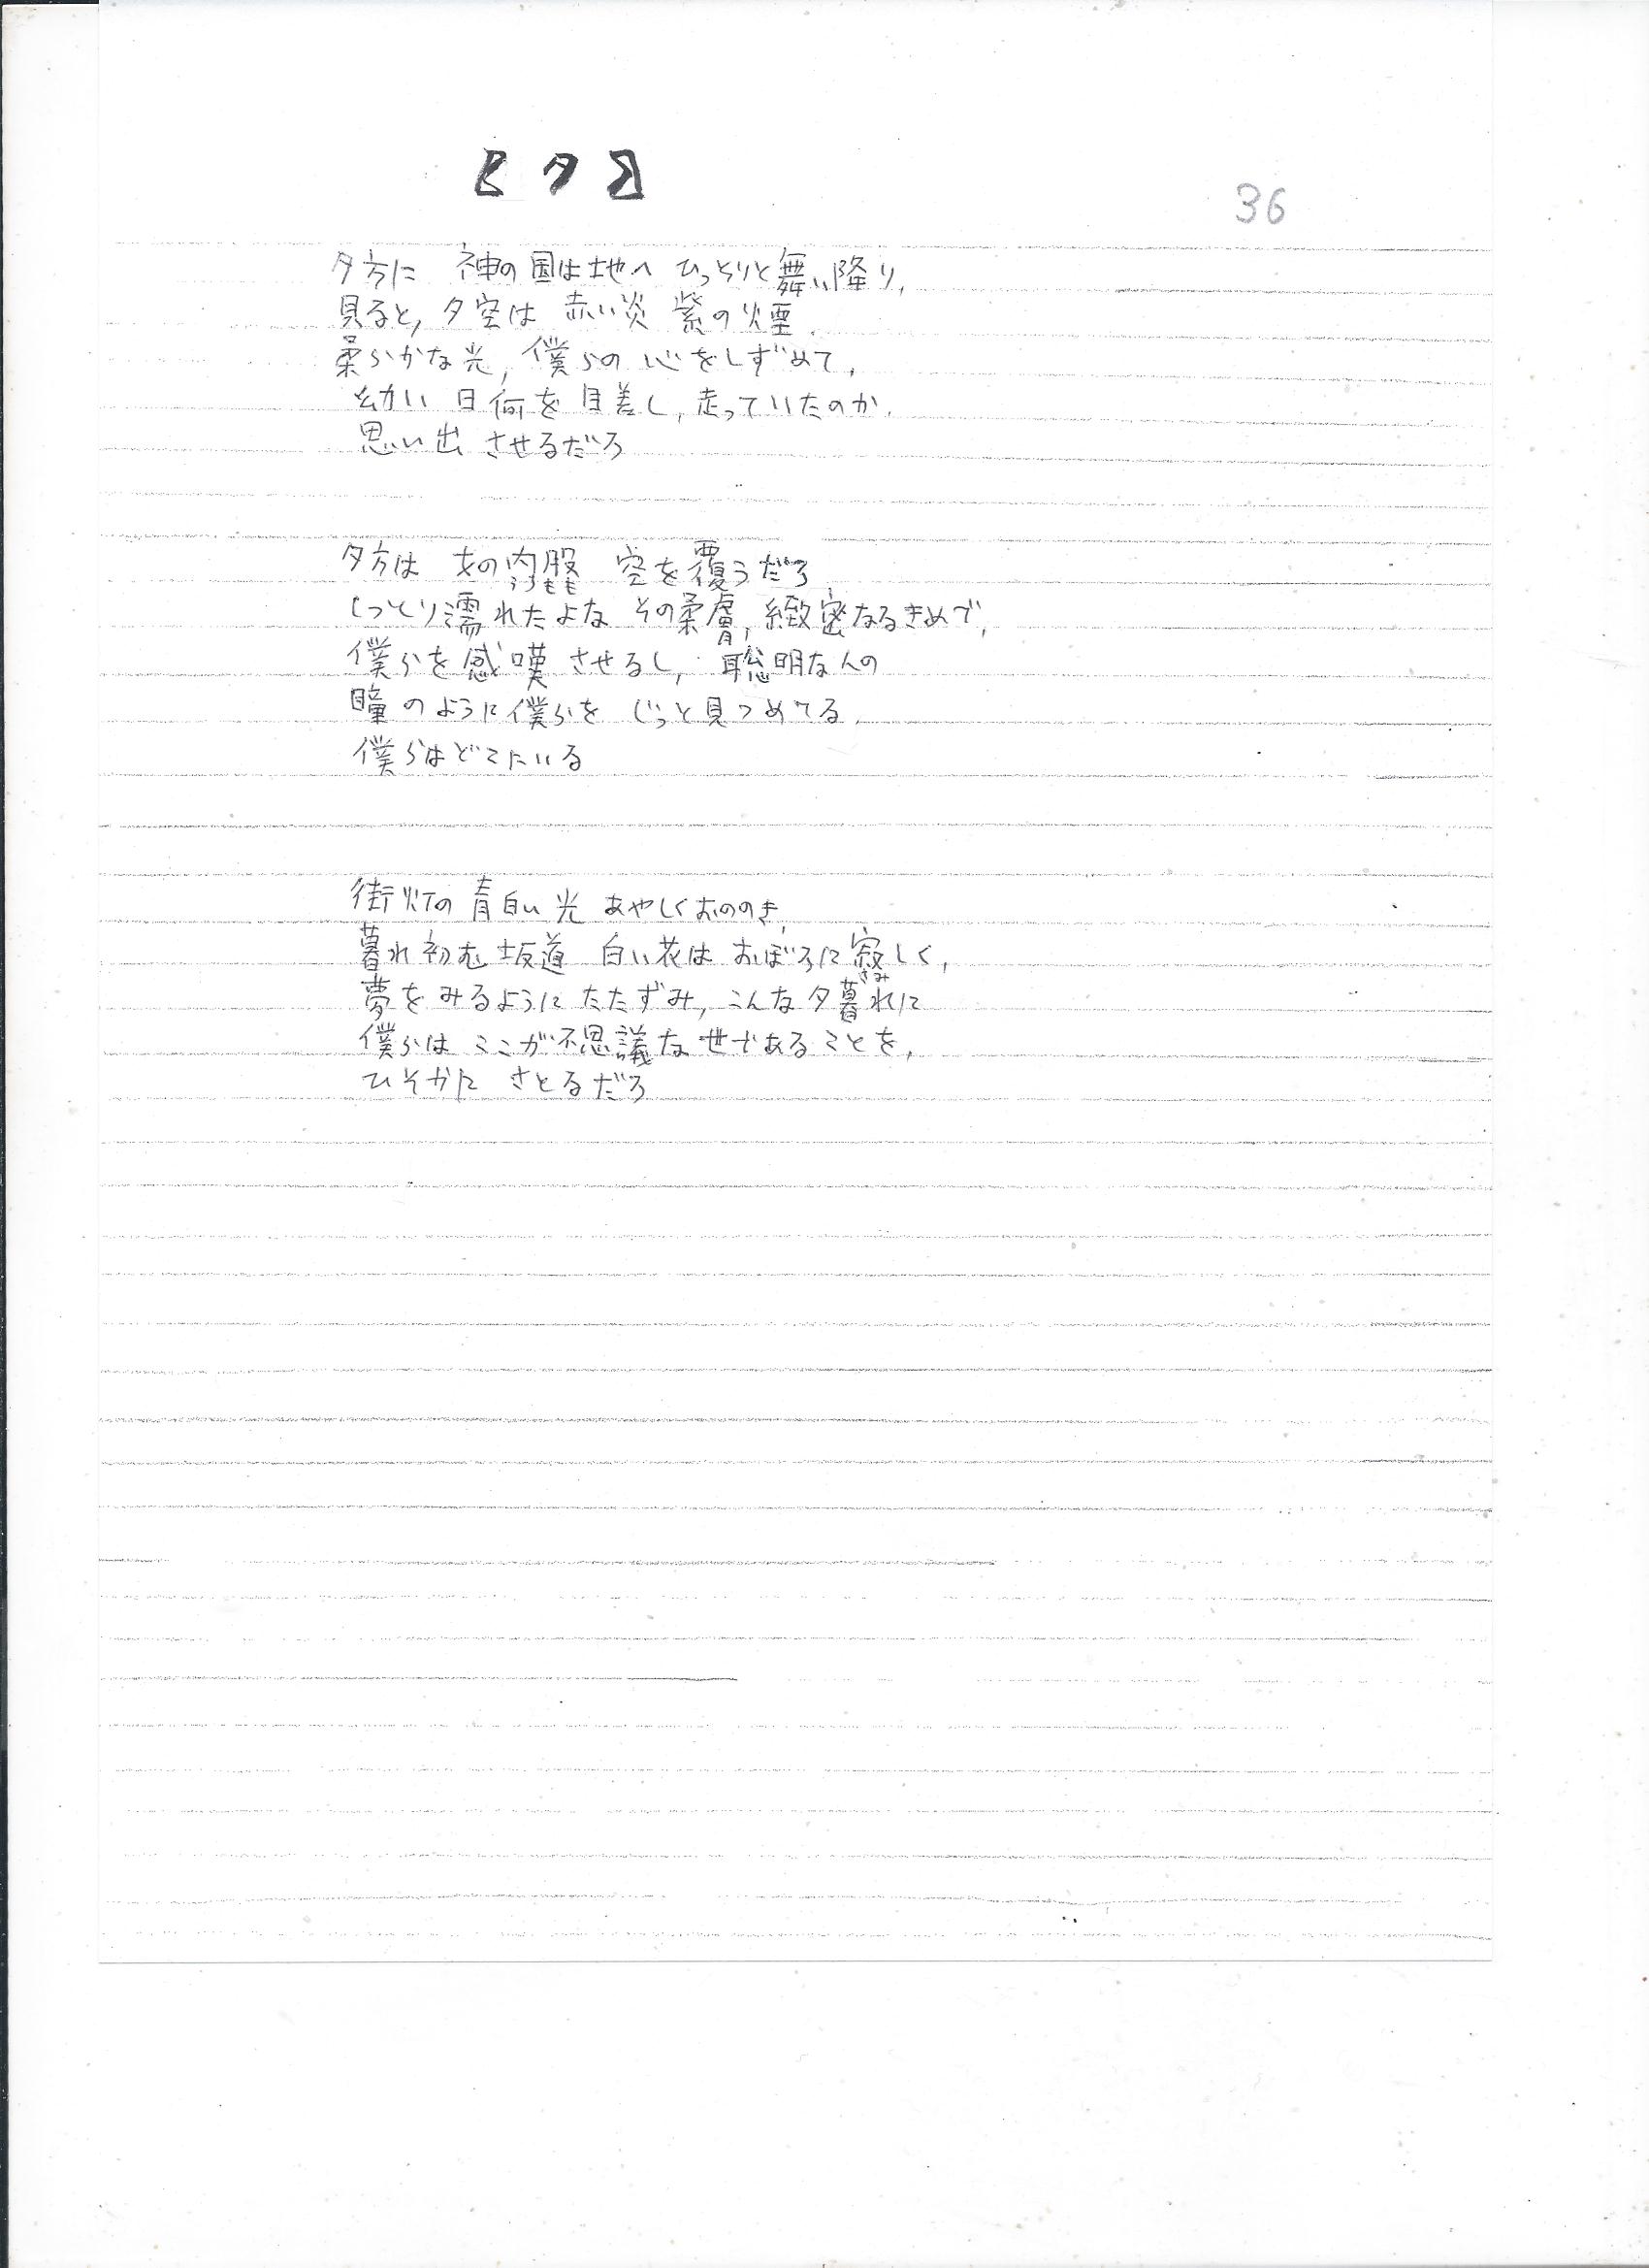 【夕】
36
夕方に 神の国は地へ ひっそりと舞い降り,
見ると, 夕空は 赤い炎 紫の煙.
柔らかな光, 僕らの 心をしずめて,
幼い 日何を 目差し, 走っていたのか.
思い出 させるだろ
夕方は 女の内股 空を覆うだろ
うちもも
しっとり濡れたよな その柔膚, 緻密なるきめで,
僕らを感嘆させるし, 聡明な人の
瞳のように僕らを じっと見つめてる.
僕らはどこにいる
街灯の 青白い 光 あやしくおののき,
暮れ初む坂道 白い花は おぼろに寂しく,
さみ
夢をみるように たたずみ, こんな夕暮れに
僕らは ここが不思議な世であることを,
ひそかに さとるだろ